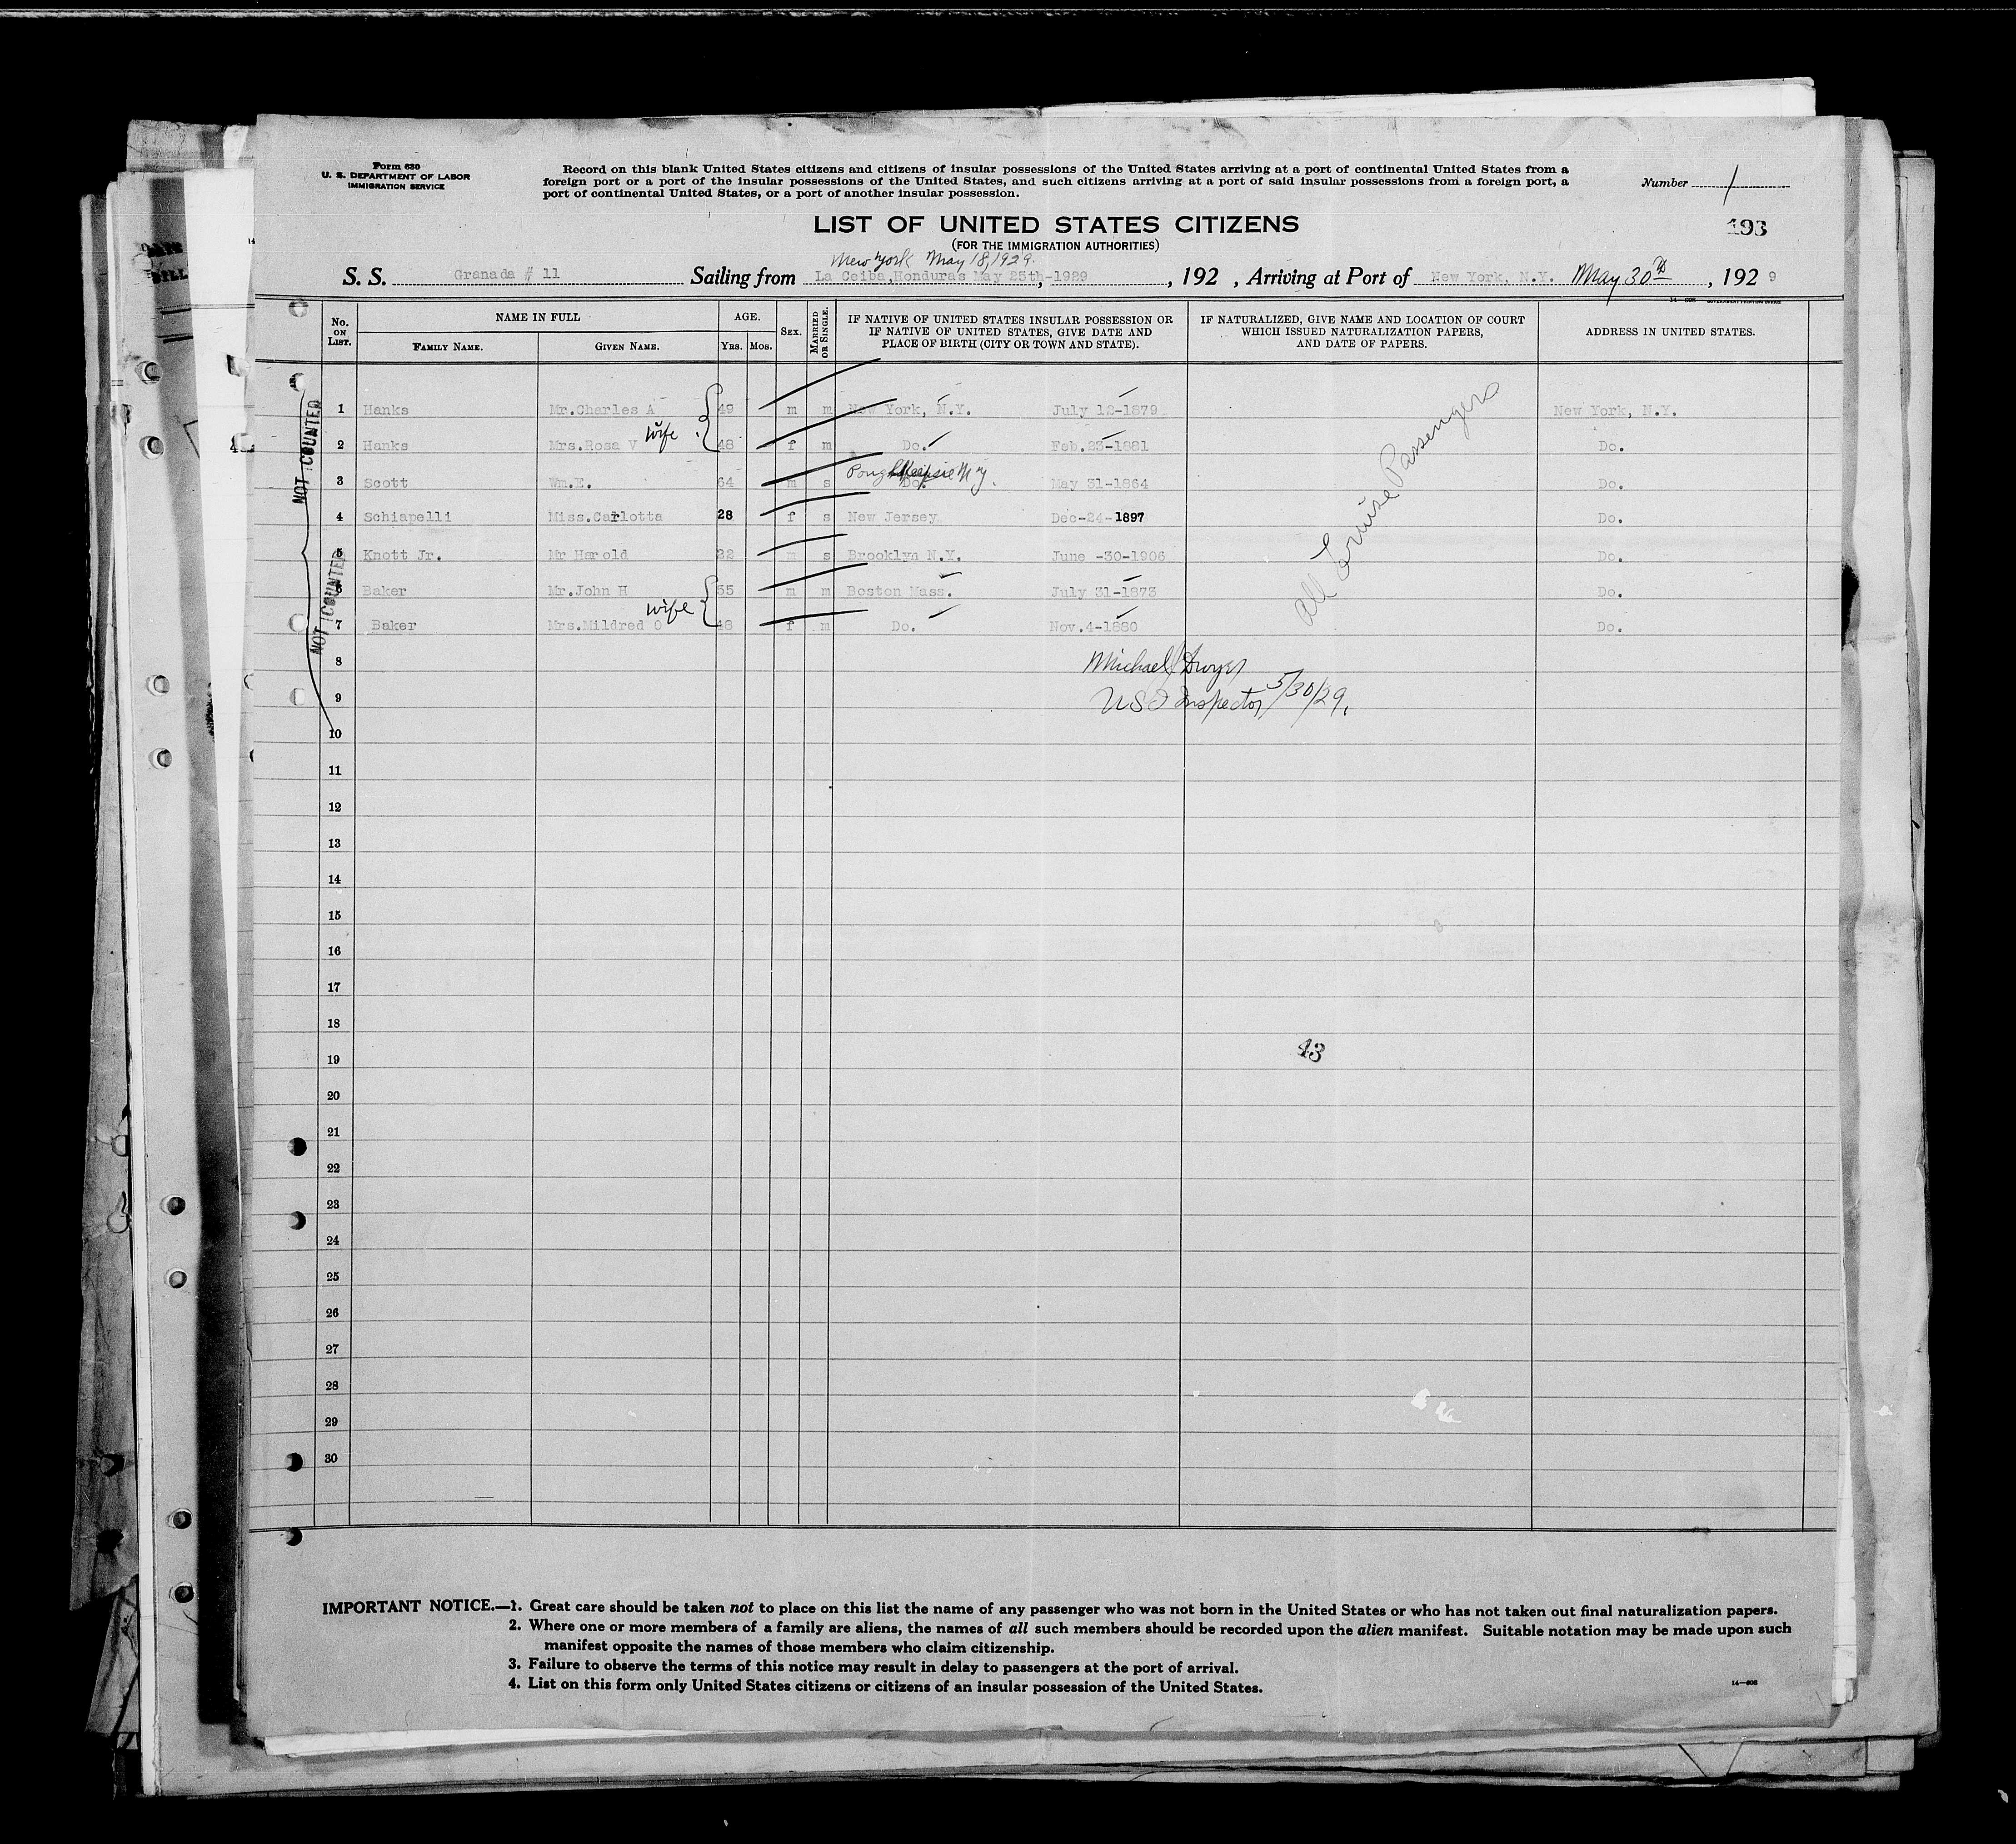 Form 630
U. S. DEPARTMENT OF LABOR
IMMIGRATION SERVICE
Record on this blank United States citizens and citizens of insular possessions of the United States arriving at a port of continental United States from a
foreign port or a port of the insular possessions of the United States, and such citizens arriving at a port of said insular possessions from a foreign port, a
port of continental United States, or a port of another insular possession.
Number 1
LIST OF UNITED STATES CITIZENS
193
(FOR THE IMMIGRATION AUTHORITIES)
New York May 18, 1929.
S. S. Granada # 11 Sailing from La Ceiba, Honduras May 25th-1929, 192 , Arriving at Port of New York, N.Y. May 30th, 192 9
No. ON LIST. NAME IN FULL AGE. SEX. MARRIED OR SINGLE. IF NATIVE OF UNITED STATES INSULAR POSSESSION OR IF NATIVE OF UNITED STATES, GIVE DATE AND PLACE OF BIRTH (CITY OR TOWN AND STATE). IF NATURALIZED, GIVE NAME AND LOCATION OF COURT WHICH ISSUED NATURALIZATION PAPERS, AND DATE OF PAPERS. ADDRESS IN UNITED STATES.
FAMILY NAME. GIVEN NAME. YRS. MOS.
NOT COUNTED
NOT COUNTED
1 Hanks Mr. Charles A 49 m m New York, N.Y. July 12-1879 New York, N.Y.
2 Hanks Mrs. Rosa V wife 48 f m Do. Feb. 23-1881 Do.
3 Scott Wm. E. 64 m s Do. Poughkeepsie N.Y. May 31-1864 Do.
4 Schiapelli Miss. Carlotta 28 f s New Jersey Dec-24-1897 Do.
5 Knott Jr. Mr Harold 22 m s Brooklyn N.Y. June -30-1906 Do.
6 Baker Mr. John H 55 m m Boston Mass. July 31-1873 Do.
7 Baker Mrs. Mildred O wife 48 f m Do. Nov. 4-1880 Do.
All Cruise Passengers
8 Michael J Dwyer
9 US I Inspector 5/30/29.
10
11
12
13
14
15
16
17
18
43
19
20
21
22
23
24
25
26
27
28
29
30
IMPORTANT NOTICE.—1. Great care should be taken not to place on this list the name of any passenger who was not born in the United States or who has not taken out final naturalization papers.
2. Where one or more members of a family are aliens, the names of all such members should be recorded upon the alien manifest. Suitable notation may be made upon such
manifest opposite the names of those members who claim citizenship.
3. Failure to observe the terms of this notice may result in delay to passengers at the port of arrival.
4. List on this form only United States citizens or citizens of an insular possession of the United States.
14—606